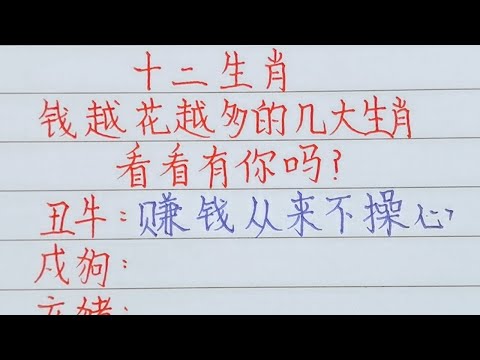 十二生肖
钱越花越多的几大生肖
看看有你吗?
丑牛:赚钱从来不操心
戌狗:
亥猪: